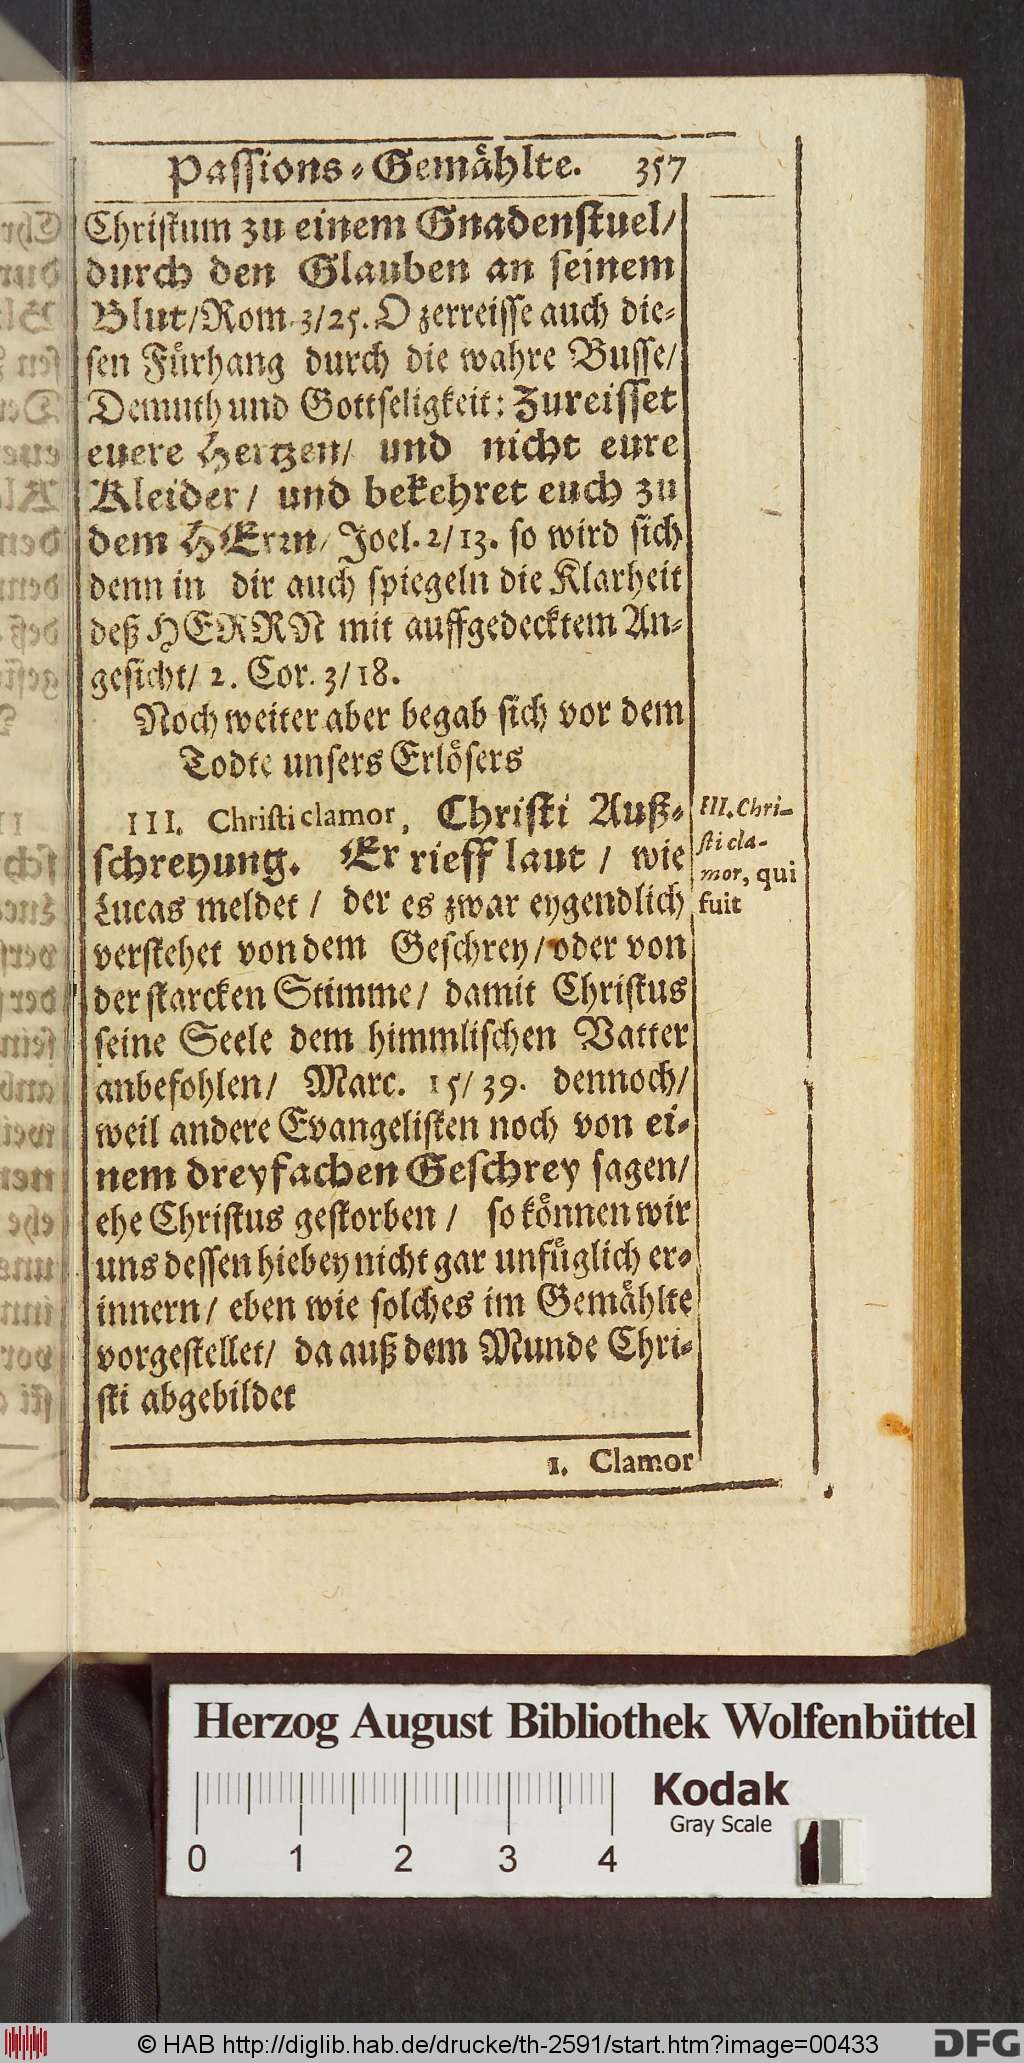 Passions-Gemählte. 357
Christum zu einem Gnadenstuel/
durch den Glauben an seinem
Blut/Rom. 3/25. O zerreisse auch die-
sen Fürhang durch die wahre Busse/
Demuth und Gottseligkeit: Zureisset
euere Hertzen/ und nicht eure
Kleider/ und bekehret euch zu
dem HErrn/ Joel. 2/13. so wird sich
denn in dir auch spiegeln die Klarheit
deß HERRN mit auffgedecktem An-
gesicht/ 2. Cor. 3/18.
Noch weiter aber begab sich vor dem
Todte unsers Erlösers
III. Christi clamor, Christi Auß-
schreyung. Er rieff laut / wie
Lucas meldet / der es zwar eygendlich
verstehet von dem Geschrey/oder von
der starcken Stimme/ damit Christus
seine Seele dem himmlischen Vatter
anbefohlen/ Marc. 15/39. dennoch/
weil andere Evangelisten noch von ei-
nem dreyfachen Geschrey sagen/
ehe Christus gestorben / so können wir
uns dessen hiebey nicht gar unfüglich er-
innern/ eben wie solches im Gemählte
vorgestellet/ da auß dem Munde Chri-
sti abgebildet
1. Clamor
III. Chri-
sti cla-
mor, qui
fuit
Herzog August Bibliothek Wolfenbüttel
Kodak
Gray Scale
0 1 2 3 4
© HAB http://diglib.hab.de/drucke/th-2591/start.htm?image=00433
DFG